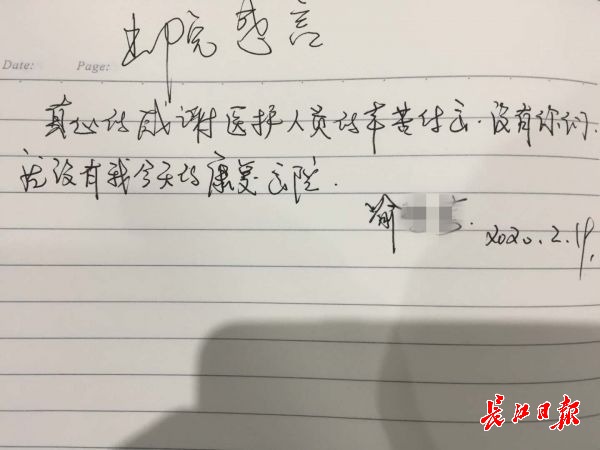 出院感言
Date:
Page:
真心的感谢医护人员的辛苦付出.没有你们.
就没有我今天的康复出院.
喻
2020.2.19.
长江日报